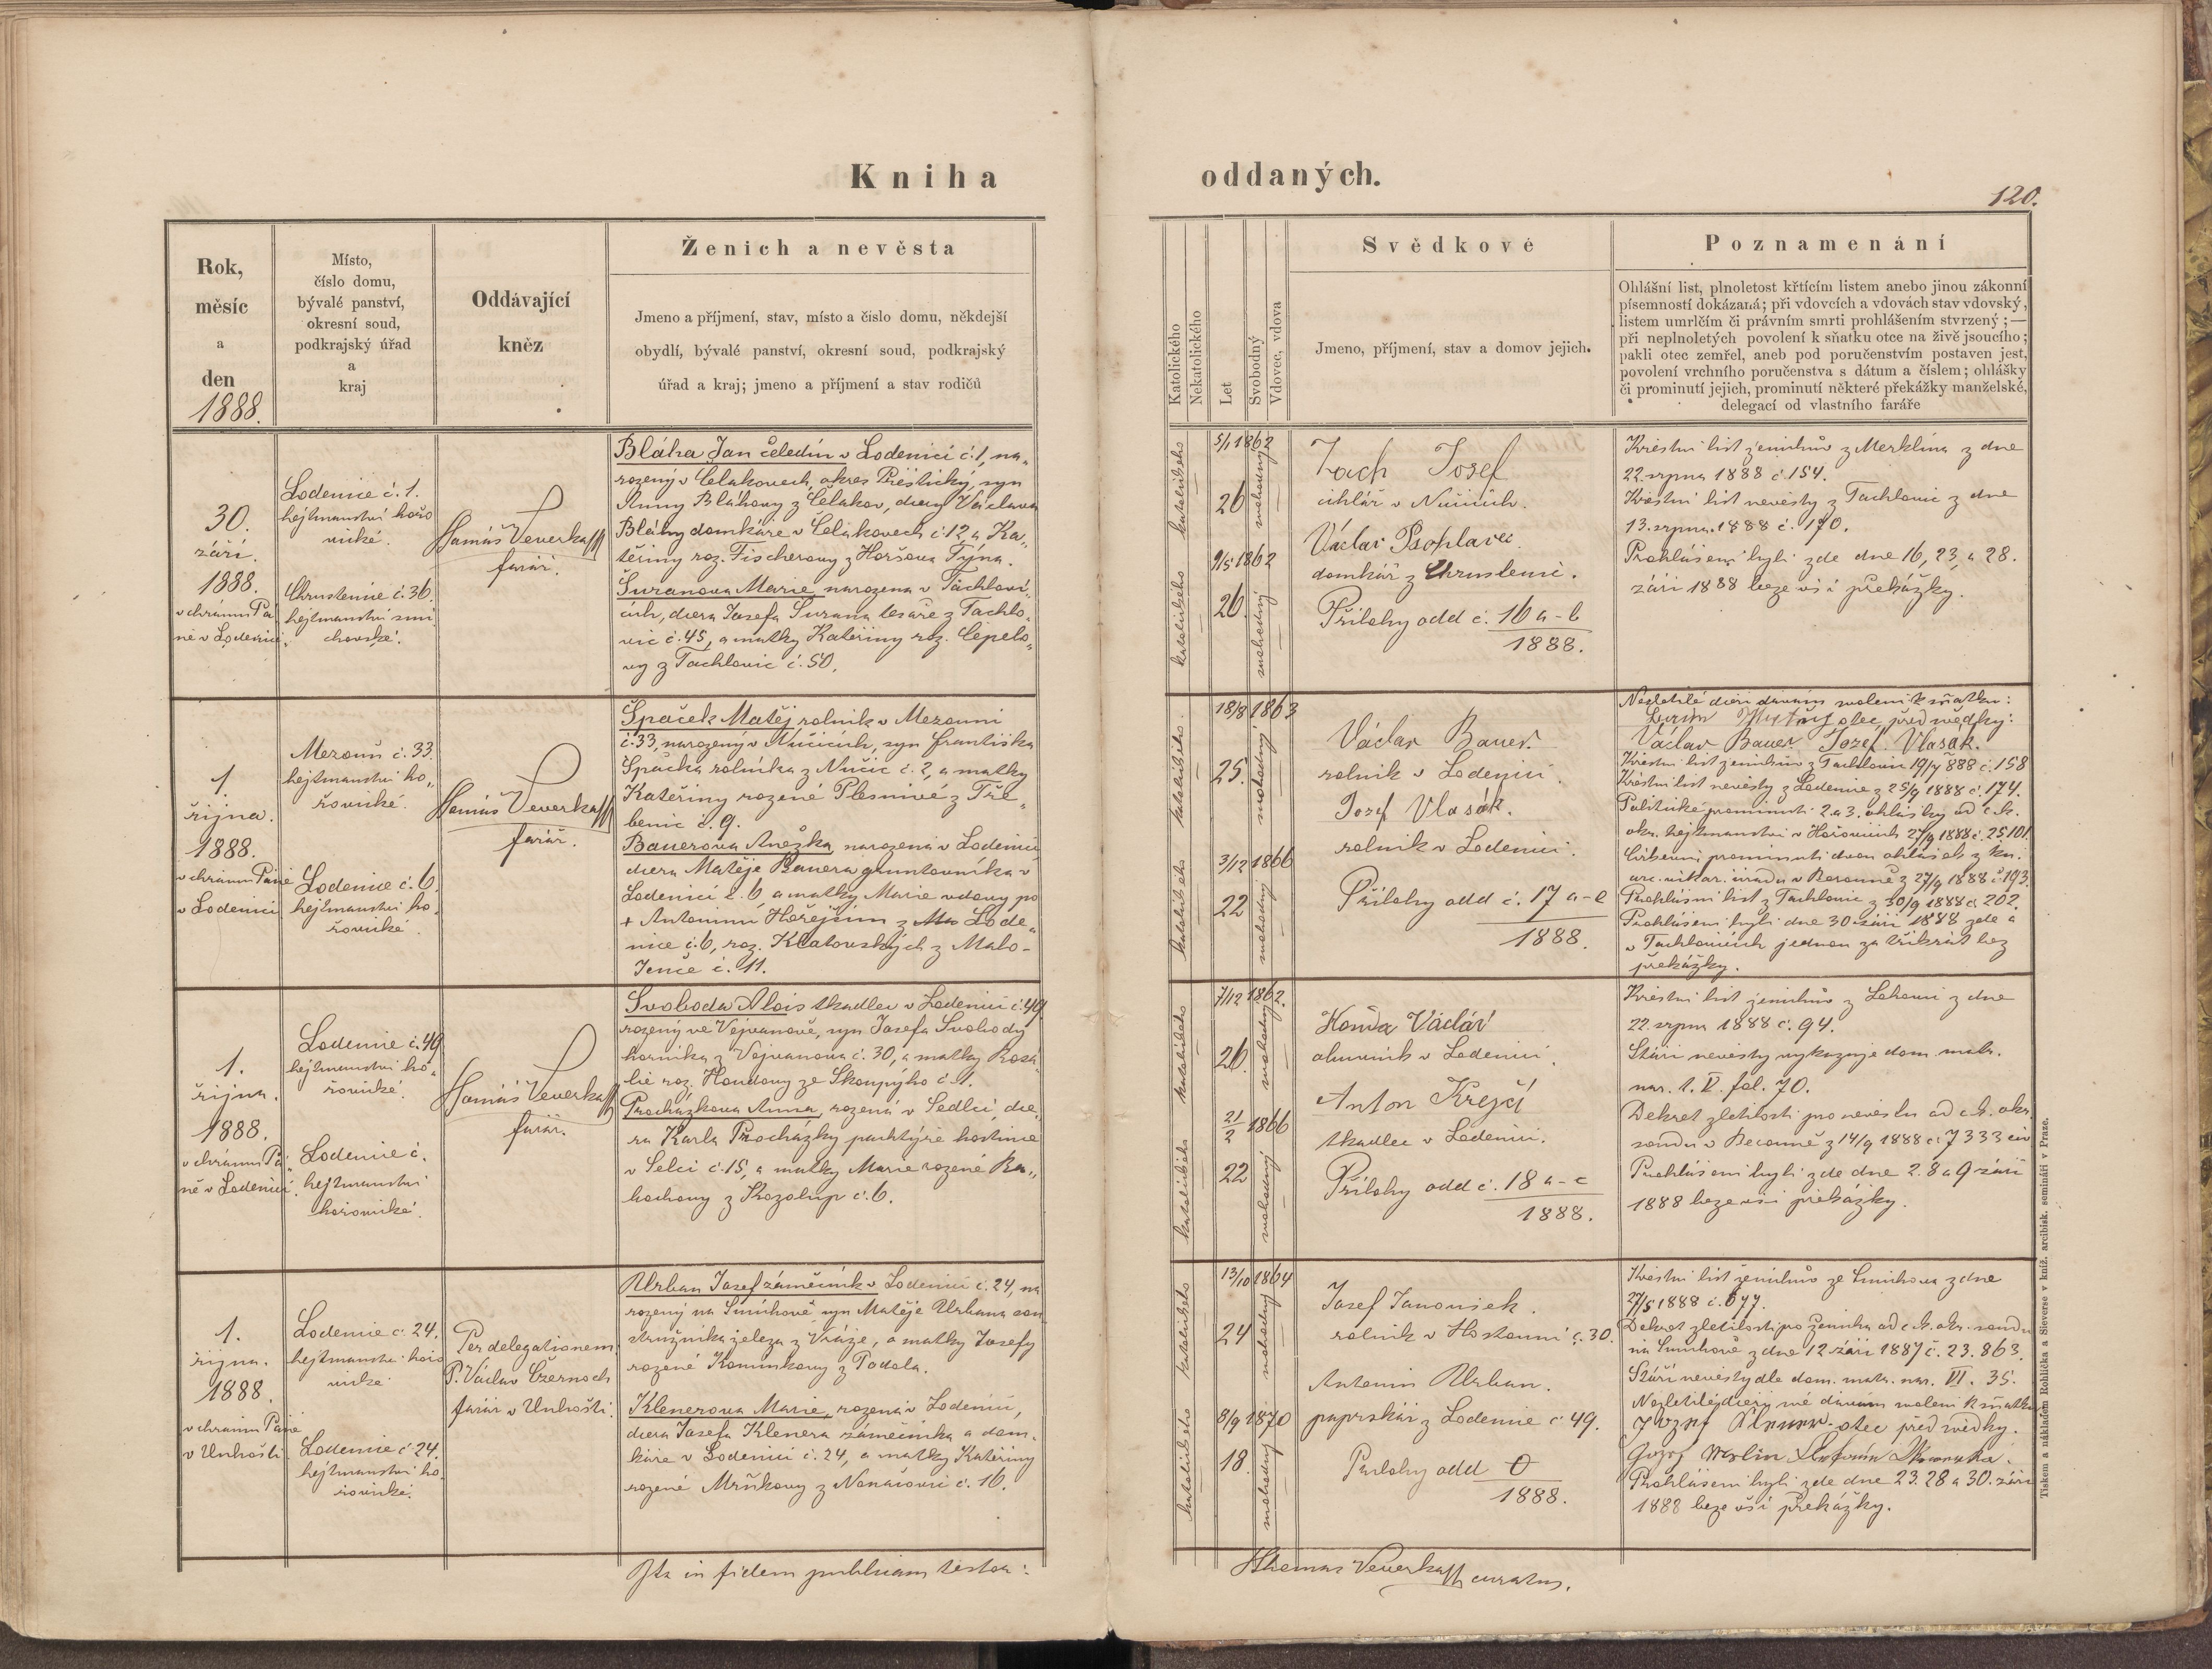 Kniha
oddaných.
120.
Rok,
měsíc
a
den
1888.
Místo,
číslo domu,
bývalé panství,
okresní soud,
podkrajský úřad
a
kraj
Oddávající
kněz
Ženich a nevěsta
Jmeno a příjmení, stav, místo a čislo domu, někdejší
obydlí, bývalé panství, okresní soud, podkrajský
úřad a kraj; jmeno a příjmení a stav rodičů
Katolického
Nekatolického
Let
Svobodný
Vdovec, vdova
Svědkové
Jmeno, příjmení, stav a domov jejich.
Poznamenání
Ohlášní list, plnoletost křtícím listem anebo jinou zákonní
písemností dokázaná; při vdovcích a vdovách stav vdovský,
listem umrlčím či právním smrti prohlášením stvrzený;—
při neplnoletých povolení k sňatku otce na živě jsoucího;
pakli otec zemřel, aneb pod poručenstvím postaven jest,
povolení vrchního poručenstva s dátum a číslem; ohlášky
či prominutí jejich, prominutí některé překážky manželské,
delegací od vlastního faráře
30.
září.
1888.
v chrámu Pá
ně v Lodenici.
Lodenice č. 1.
hejtmanství hořo
vické.
Chrustenice č. 36.
hejtmanství smí
chovské.
Veverka
farář.
Bláha Jan čeledín v Lodenici č. 1, na„
rozený v Čelakovech, okres Přestický, syn
Anny Bláhovy z Čelakov, dcery Václava
Bláhy domkáře v Čelakovech č. 12, a Ka„
teřiny roz. Fischerovy z Horšova Týna.
Šuranova Marie, narozena v Tachlovi„
cích, dcera Josefa Šurana tesaře z Tachlo„
vic č. 45, a matky Kateřiny roz. Čepelo„
vy z Tachlovic č. 50.
katolického
katolického
5/1 1862
26
9/5 1862
26.
svobodný
svobodný
Zach Josef
cihlář v Nučicích.
Václav Psohlavec
domkář z Chrustenic.
Přílohy odd č. 16 a–b
1888.
Křestní list ženichův z Merklína z dne
22. srpna 1888 č 154.
Křestní list nevěsty z Tachlovic z dne
13. srpna 1888 č. 170.
Prohlášeni byli zde dne 16, 23, a 28.
září 1888 beze vší překážky.
1.
října.
1888.
v chrámu Páně
v Lodenici
Mezouň č. 33.
hejtmanství ho„
řovické.
Lodenice č. 6.
hejtmanství ho„
řovické
Veverka
farář.
Špaček Matěj rolník v Mezouni
č. 33, narozený v Nučicích, syn Františka
Špačka rolníka z Nučic č. 2, a matky
Kateřiny rozené Plesnivé z Tře„
benic č. 9.
Bauerova Anežka narozená v Lodenici
dcera Matěje Bauera gruntovníka v
Lodenici č. 6, a matky Marie vdovy po
+ Antonínu Hořejším z Lode„
nice č. 6, roz. Klatovských z Malo-
Jenče č. 11.
katolického
katolického
18/8 1863
25.
3/12 1866
22
svobodný
svobodný
Václav Bauer.
rolník v Lodenici.
Josef Vlasák.
rolník v Lodenici.
Přílohy odd č. 17 a–e
1888.
Nezletilé dceři dávám svolení k sňatku:
otec, před svědky:
Václav Bauer Jozef Vlasák.
Křestní list ženichův z Tachlovic 19/7 888 č. 158
Křestní list nevěsty z Lodenice z 25/9 1888 č. 174.
Politické prominutí 2 a 3. ohlášky od c. k.
okr. hejtmanství v Hořovicích 27/9 1888 č. 25101
Církevní prominutí dvou ohlášek z kn.
arc. vikar. úřadu v Berouně z 27/9 1888 č. 193.
Prohlášní list z Tachlovic z 30/9 1888 č. 202.
Prohlášeni byli dne 30 září 1888 zde a
v Tachlovicích jednou za třikrát bez
překážky.
1.
října.
1888.
v chrámu Pá„
ně v Lodenici.
Lodenice č. 49
hejtmanství ho„
řovické.
Lodenice č.
hejtmanství
hořovické.
Veverka
farář.
Svoboda Alois tkadlec v Lodenici č. 49
rozený ve Vojvanově, syn Josefa Svobody
horníka z Vojvanova č. 30, a matky Rozá„
lie roz. Houdovy ze Skoupýho č. 1.
Procházkova Anna, rozená v Sedlci, dce„
ra Karla Procházky pachtýře hostince
v Selci č. 15, a matky Marie rozené Ba„
hochovy z Kozolup č. 6.
katolického
katolického
7/12 1862.
26.
21/2 1866
22
svobodný
svobodný
Houda Václav
obuvník v Lodenici.
Anton Krejčí
tkadlec v Lodenici.
Přílohy odd č. 18 a–c
1888.
Křestní list ženichův z z dne
22. srpna 1888 č. 94.
Stáří nevěsty vykazuje dom. matr.
nar. t. V. fol. 70.
Dekret zletilosti pro nevěstu od c. k. okr.
soudu v Berouně z 14/9 1888 č. 7333 civ
Prohlášeni byli zde dne 2. 8 a 9 září
1888 beze vší překážky.
1.
října.
1888.
v chrámu Páně
v Unhošti
Lodenice č. 24.
hejtmanství hořo
vické
Lodenice č. 24.
hejtmanství ho„
řovické.
Per delegationem
P. Václav Czernoch
farář v Unhošti.
Urban Josef zámečník v Lodenici č. 24, na
rozený na Smíchově, syn Matěje Urbana sou
stružníka železa z Vráže, a matky Josefy
rozené Komínkovy z Podola.
Klenerova Marie, rozená v Lodenici,
dcera Josefa Klenera zámečníka a dom„
káře v Lodenici č. 24, a matky Kateřiny
rozené Mrňkovy z Nenačovic č. 16.
katolického
katolického
13/10 1864
24
8/9 1870
18.
svobodný
svobodný
Josef Janoušek.
rolník v Hostouni č. 30.
Antonin Urban.
paprskář z Lodenice č. 49.
Přílohy odd 0
1888.
Křestní list ženichův ze Smíchova z dne
27/5 1888 č. 677.
Dekret zletilosti pro ženicha od c. k. okr. soudu
na Smíchově z dne 12 září 1887 č. 23.863.
Stáří nevěsty dle dom. matr. nar. VI. 35.
Nezletilé dceři mé dávám svolení k sňatku
otec před svědky.
Prohlášeni byli zde dne 23. 28 a 30. září
1888 beze vší překážky.
Ita in fidem publicam testor:
Thomas Veverka curatus.
Tiskem a nákladem Rohlíčka a Sieverse v kníž. arcibisk. semináři v Praze.